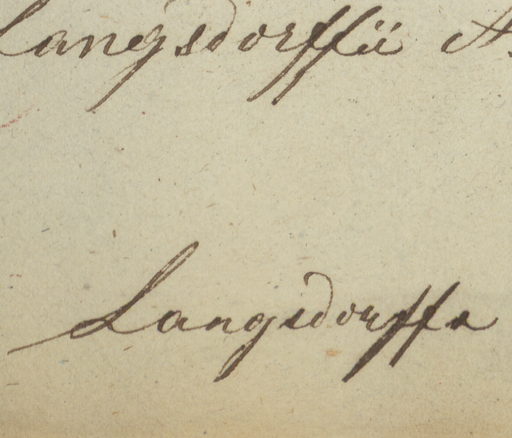 Langsdorffii A.
Langsdorffs